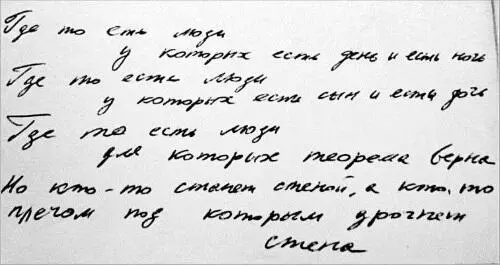 Где то есть люди
у которых есть день и есть ночь
Где то есть люди
у которых есть сын и есть дочь
Где то есть люди
для которых теорема верна
Но кто-то станет стеной, а кто, то
плечом под которым дрогнет
стена